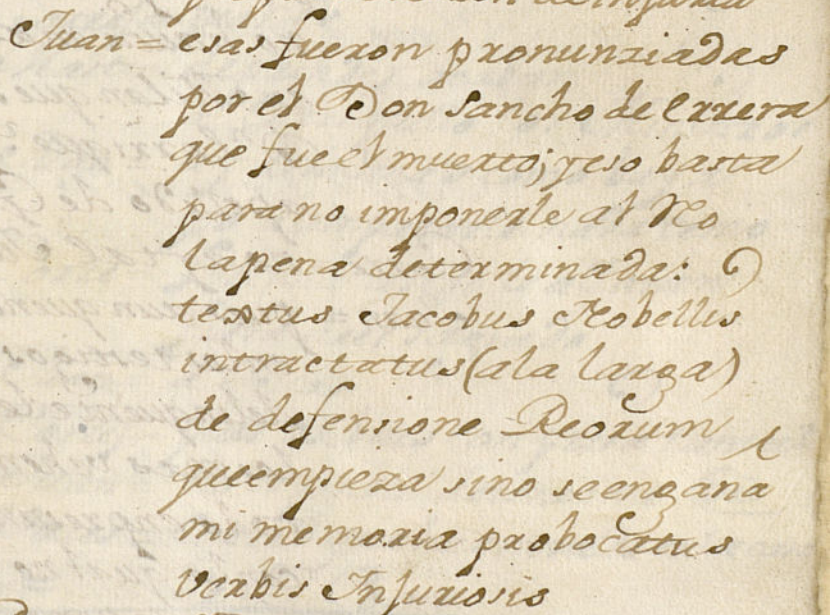 Juan = esas fueron pronunziadas
por el Don Sancho de Errera
que fue el muerto; y eso basta
para no imponerle al Reo
la pena determinada:
textus Jacobus Nobellis
in tractatus (a la larga)
de defensione Reorum
que empieza si no se engana
mi memoria probocatus
verbis Injuriosis